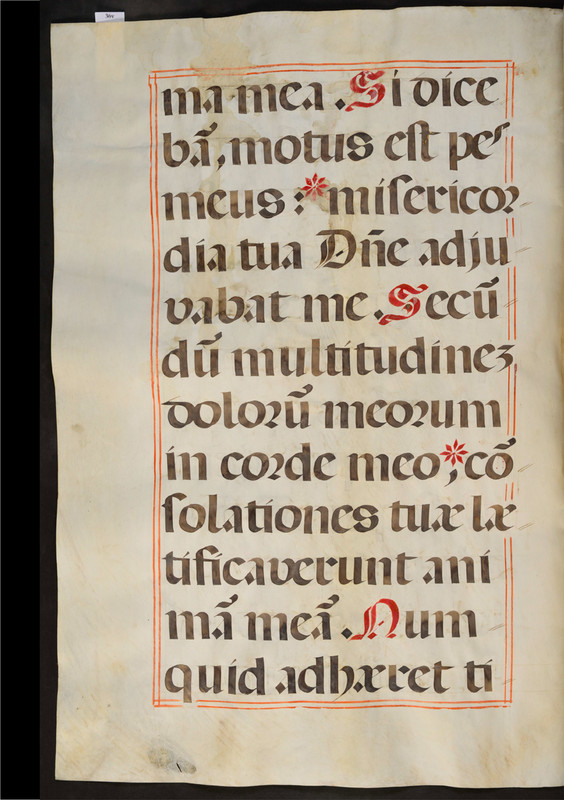 ma mea . Si dice
bā, motus est pes
meus : * misericor
dia tua Dñe adju
vabat me . Secū
dū multitudinez
dolorū meorum
in corde meo ; * cō
solationes tuæ læ
tificaverunt ani
mā meā . Num
quid adhæret ti